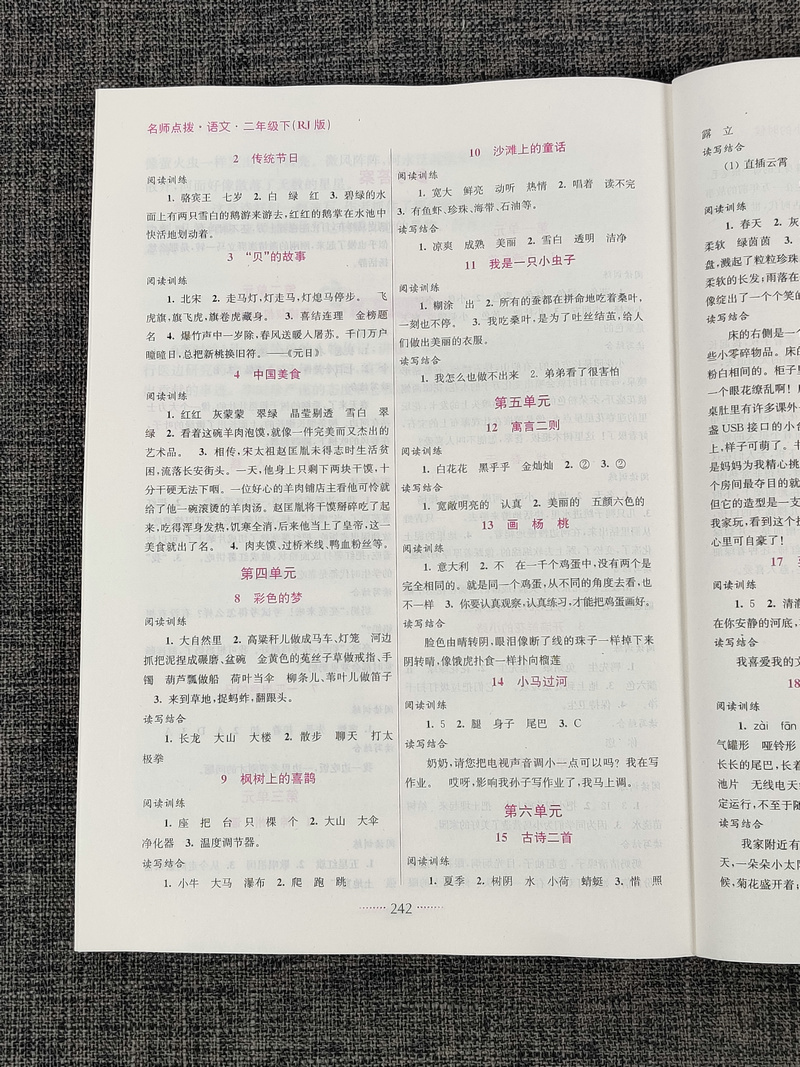 名师点拨·语文·二年级下(RJ版)
2 传统节日
阅读训练
1. 骆宾王 七岁 2. 白 绿 红 3. 碧绿的水
面上有两只雪白的鹅游来游去,红红的鹅掌在水池中
快活地划动着。
3 “贝”的故事
阅读训练
1. 北宋 2. 走马灯,灯走马,灯熄马停步。 飞
虎旗,旗飞虎,旗卷虎藏身。 3. 喜结连理 金榜题
名 4. 爆竹声中一岁除,春风送暖入屠苏。千门万户
曈曈日,总把新桃换旧符。——《元日》
4 中国美食
阅读训练
1. 红红 灰蒙蒙 翠绿 晶莹剔透 雪白 翠
绿 2. 看着这碗羊肉泡馍,就像一件完美而又杰出的
艺术品。 3. 相传,宋太祖赵匡胤未得志时生活贫
困,流落长安街头。一天,他身上只剩下两块干馍,十
分干硬无法下咽。一位好心的羊肉铺店主看他可怜就
给了他一碗滚烫的羊肉汤。赵匡胤将干馍掰碎吃了起
来,吃得浑身发热,饥寒全消,后来他当上了皇帝,这一
美食就出了名。 4. 肉夹馍、过桥米线、鸭血粉丝等。
第四单元
8 彩色的梦
阅读训练
1. 大自然里 2. 高粱秆儿做成马车、灯笼 河边
抓把泥捏成碾磨、盆碗 金黄色的菟丝子草做戒指、手
镯 葫芦瓢做船 荷叶当伞 柳条儿、苇叶儿做笛子
3. 来到草地,捉蚂蚱,翻跟头。
读写结合
1. 长龙 大山 大楼 2. 散步 聊天 打太
极拳
9 枫树上的喜鹊
阅读训练
1. 座 把 台 只 棵 个 2. 大山 大伞
净化器 3. 温度调节器。
读写结合
1. 小牛 大马 瀑布 2. 爬 跑 跳
10 沙滩上的童话
阅读训练
1. 宽大 鲜亮 动听 热情 2. 唱着 读不完
3. 有鱼虾、珍珠、海带、石油等。
读写结合
1. 凉爽 成熟 美丽 2. 雪白 透明 洁净
11 我是一只小虫子
阅读训练
1. 糊涂 出 2. 所有的蚕都在拼命地吃着桑叶,
一刻也不停。 3. 我吃桑叶,是为了吐丝结茧,给人
们做出美丽的衣服。
读写结合
1. 我怎么也做不出来 2. 弟弟看了很害怕
第五单元
12 寓言二则
阅读训练
1. 白花花 黑乎乎 金灿灿 2. ② 3. ②
读写结合
1. 宽敞明亮的 认真 2. 美丽的 五颜六色的
13 画杨桃
阅读训练
1. 意大利 2. 不 在一千个鸡蛋中,没有两个是
完全相同的。就是同一个鸡蛋,从不同的角度去看,也
不一样 3. 你要认真观察,认真练习,才能把鸡蛋画好。
读写结合
脸色由晴转阴,眼泪像断了线的珠子一样掉下来
阴转晴,像饿虎扑食一样扑向榴莲
14 小马过河
阅读训练
1. 5 2. 腿 身子 尾巴 3. C
读写结合
奶奶,请您把电视声音调小一点可以吗?我在写
作业。 哎呀,影响我孙子写作业了,我马上调。
第六单元
15 古诗二首
阅读训练
1. 夏季 2. 树阴 水 小荷 蜻蜓 3. 惜 照
242
露 立
读写结合
(1) 直插云霄
阅读训练
1. 春天 2. 灰
柔软 绿茵茵 3.
盘,溅起了粒粒珍珠
柔软的长发;雨落在
像绽出了一个个笑的
读写结合
床的右侧是一
些小零碎物品。床的
粉白相间的。柜子里
一个眼花缭乱啊!
桌肚里有许多课外
盏USB接口的小台
上,样子可萌了。书
是妈妈为我精心挑
个房间最夺目的就
但它的造型是一支
我家玩,看到这个拱
心里可自豪了!
17
阅读训练
1. 5 2. 清澈
在你安静的河底,
读写结合
我喜爱我的文
18
阅读训练
1. zài fān
气罐形 哑铃形
长长的尾巴,长着
池片 无线电天线
定运行,不至于随
读写结合
我家附近有
天,一朵朵小太阳
候,菊花盛开着;